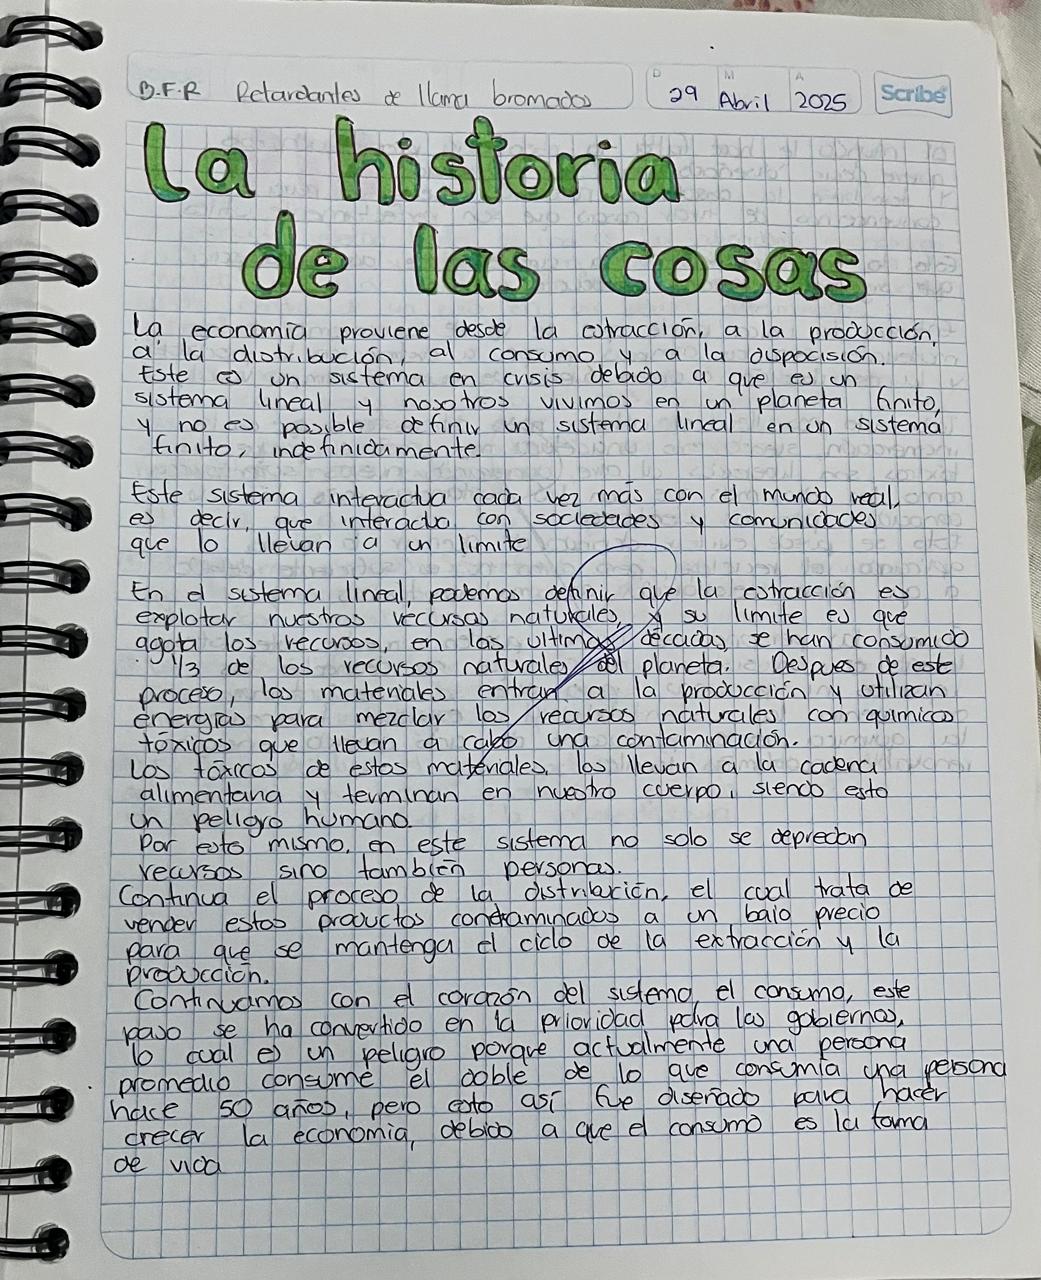 B.F.R Retardantes de llama bromados
D M A
29 Abril 2025
Scribe
La historia
de las cosas
La economía proviene desde la extracción, a la producción,
a la distribución, al consumo y a la dispocisión.
Este es un sistema en crisis debido a que es un
sistema lineal y nosotros vivimos en un planeta finito,
y no es posible definir un sistema lineal en un sistema
finito, indefinidamente.
Este sistema interactua cada vez más con el mundo real,
es decir, que interactua con sociedades y comunidades
que lo llevan a un limite
En el sistema lineal, podemos definir que la extracción es
explotar nuestros recursos naturales, y su limite es que
agota los recursos, en las ultimas décadas, se han consumido
1/3 de los recursos naturales del planeta. Despues de este
proceso, los materiales entran a la producción y utilizan
energías para mezclar los recursos naturales con quimicos
tóxicos que llevan a cabo una contaminación.
Los tóxicos de estos materiales, los llevan a la cadena
alimentaria y terminan en nuestro cuerpo, siendo esto
un peligro humano.
Por esto mismo, en este sistema no solo se depredan
recursos sino también personas.
Continua el proceso de la distribución, el cual trata de
vender estos productos contaminados a un bajo precio
para que se mantenga el ciclo de la extracción y la
producción.
Continuamos con el corazón del sistema, el consumo, este
paso se ha convertido en la prioridad para los gobiernos,
lo cual es un peligro porque actualmente una persona
promedio consume el doble de lo que consumía una persona
hace 50 años, pero esto así fue diseñado para hacer
crecer la economia, debido a que el consumo es la forma
de vida